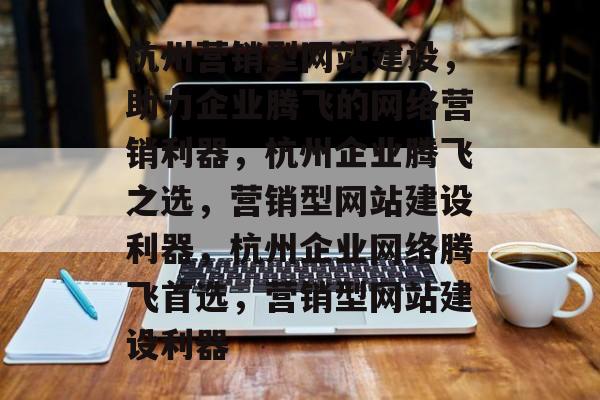 杭州营销型网站建设，
助力企业腾飞的网络营
销利器，杭州企业腾飞
之选，营销型网站建设
利器，杭州企业网络腾
飞首选，营销型网站建
设利器